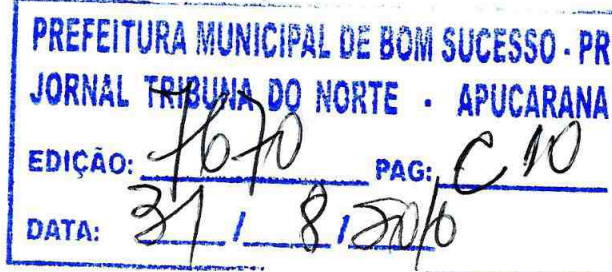 PREFEITURA MUNICIPAL DE BOM SUCESSO - PR
JORNAL TRIBUNA DO NORTE - APUCARANA
EDIÇÃO: 7670 PAG: C 10
DATA: 31 / 8 / 2016